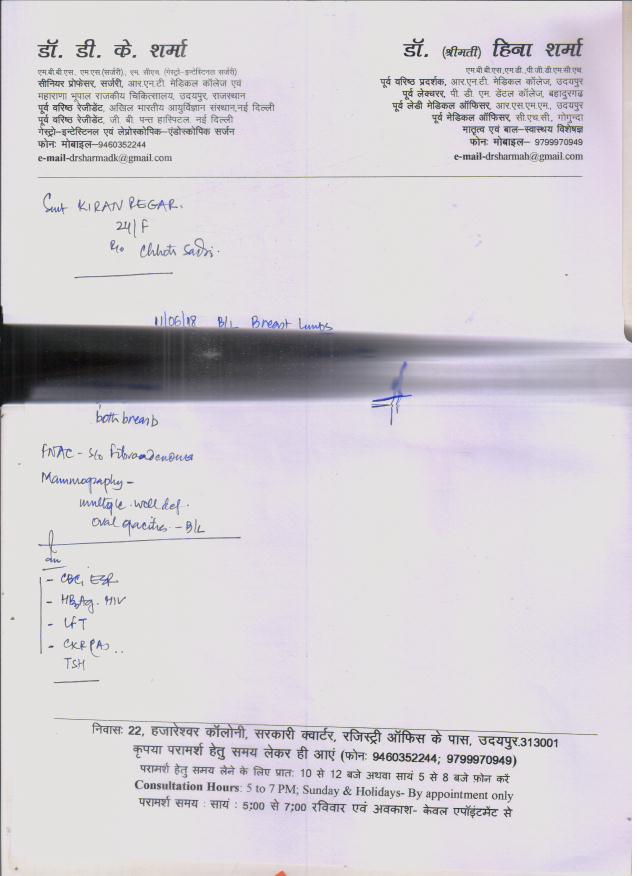 डॉ. डी. के. शर्मा
एम.बी.बी.एस. एम.एस.(सर्जरी), एम. सीएच. (गेस्ट्रो-इन्टेस्टिनल सर्जरी)
सीनियर प्रोफेसर, सर्जरी, आर.एन.टी. मेडिकल कॉलेज एवं
महाराणा भूपाल राजकीय चिकित्सालय, उदयपुर, राजस्थान
पूर्व वरिष्ठ रेजीडेंट, अखिल भारतीय आयुर्विज्ञान संस्थान,नई दिल्ली
पूर्व वरिष्ठ रेजीडेंट, जी. बी. पन्त हास्पिटल, नई दिल्ली
गेस्ट्रो-इन्टेस्टिनल एवं लेप्रोस्कोपिक-एंडोस्कोपिक सर्जन
फोनः मोबाइल-9460352244
e-mail-drsharmadk@gmail.com
डॉ. (श्रीमती) हिना शर्मा
एम.बी.बी.एस.,एम.डी.,पी.जी.डी.एम.सी.एच.
पूर्व वरिष्ठ प्रदर्शक, आर.एन.टी. मेडिकल कॉलेज, उदयपुर
पूर्व लेक्चरर, पी. डी. एम. डेंटल कॉलेज, बहादुरगढ
पूर्व लेडी मेडिकल ऑफिसर, आर.एस.एम.एम., उदयपुर
पूर्व मेडिकल ऑफिसर, सी.एच.सी., गोगुन्दा
मातृत्व एवं बाल-स्वास्थय विशेषज्ञ
फोनः मोबाइल- 9799970949
e-mail-drsharmah@gmail.com
Smt KIRAN REGAR.
24/F
R/o Chhoti Sadri.
11/06/18 B/L Breast Lumps
both breasts
FNAC - S/o Fibroadenoma
Mammography -
multiple well def.
oval opacities - B/L
Adv
- CBC, ESR
- HBsAg. HIV
- LFT
- CXR (PA)
TSH
निवासः 22, हजारेश्वर कॉलोनी, सरकारी क्वार्टर, रजिस्ट्री ऑफिस के पास, उदयपुर.313001
कृपया परामर्श हेतु समय लेकर ही आएं (फोनः 9460352244; 9799970949)
परामर्श हेतु समय लेने के लिए प्रातः 10 से 12 बजे अथवा सायं 5 से 8 बजे फ़ोन करें
Consultation Hours: 5 to 7 PM; Sunday & Holidays- By appointment only
परामर्श समय : सायं : 5;00 से 7;00 रविवार एवं अवकाश- केवल एपॉइंटमेंट से